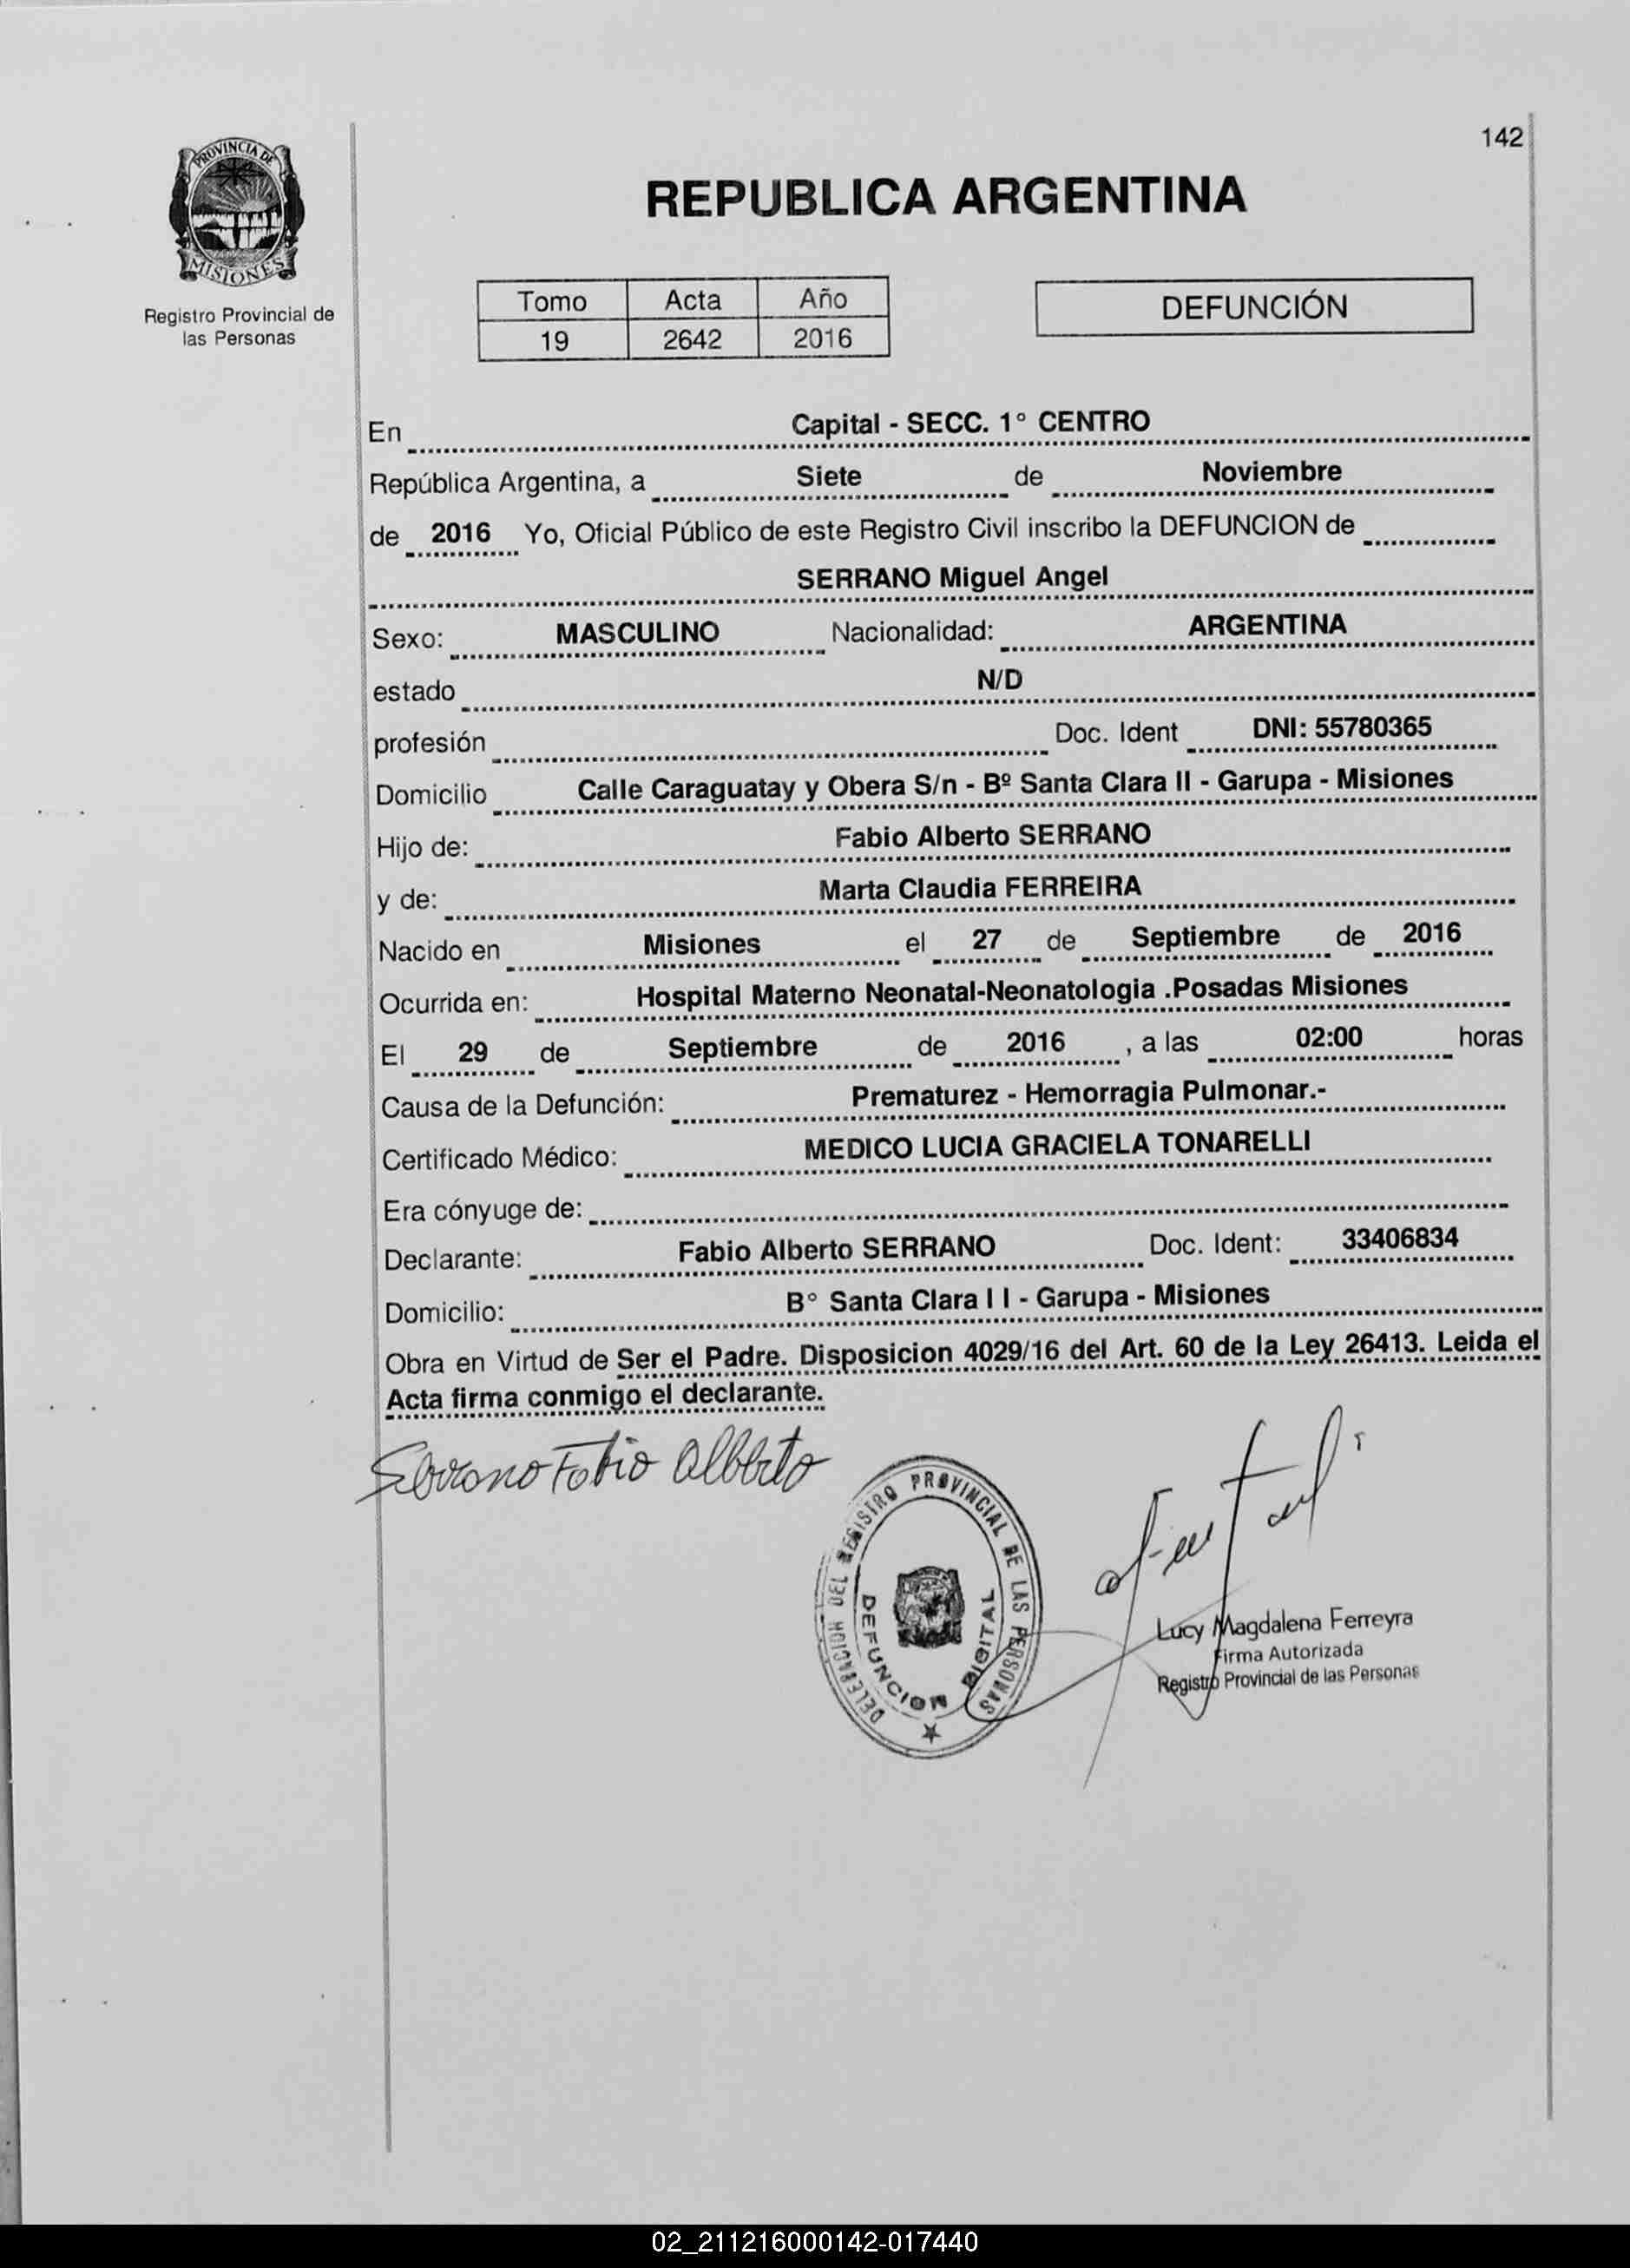 142
PROVINCIA DE
MISIONES
Registro Provincial de
las Personas
REPUBLICA ARGENTINA
Tomo Acta Año
19 2642 2016
DEFUNCIÓN
En Capital - SECC. 1° CENTRO
República Argentina, a Siete de Noviembre
de 2016 Yo, Oficial Público de este Registro Civil inscribo la DEFUNCION de
SERRANO Miguel Angel
Sexo: MASCULINO Nacionalidad: ARGENTINA
estado N/D
profesión Doc. Ident DNI: 55780365
Domicilio Calle Caraguatay y Obera S/n - Bº Santa Clara II - Garupa - Misiones
Hijo de: Fabio Alberto SERRANO
y de: Marta Claudia FERREIRA
Nacido en Misiones el 27 de Septiembre de 2016
Ocurrida en: Hospital Materno Neonatal-Neonatologia .Posadas Misiones
El 29 de Septiembre de 2016 , a las 02:00 horas
Causa de la Defunción: Prematurez - Hemorragia Pulmonar.-
Certificado Médico: MEDICO LUCIA GRACIELA TONARELLI
Era cónyuge de:
Declarante: Fabio Alberto SERRANO Doc. Ident: 33406834
Domicilio: B° Santa Clara I I - Garupa - Misiones
Obra en Virtud de Ser el Padre. Disposicion 4029/16 del Art. 60 de la Ley 26413. Leida el
Acta firma conmigo el declarante.
Serrano Fabio Alberto
DELEGACION DEL REGISTRO PROVINCIAL DE LAS PERSONAS
DEFUNCION DIGITAL
Lucy Magdalena Ferreyra
Firma Autorizada
Registro Provincial de las Personas
02_211216000142-017440